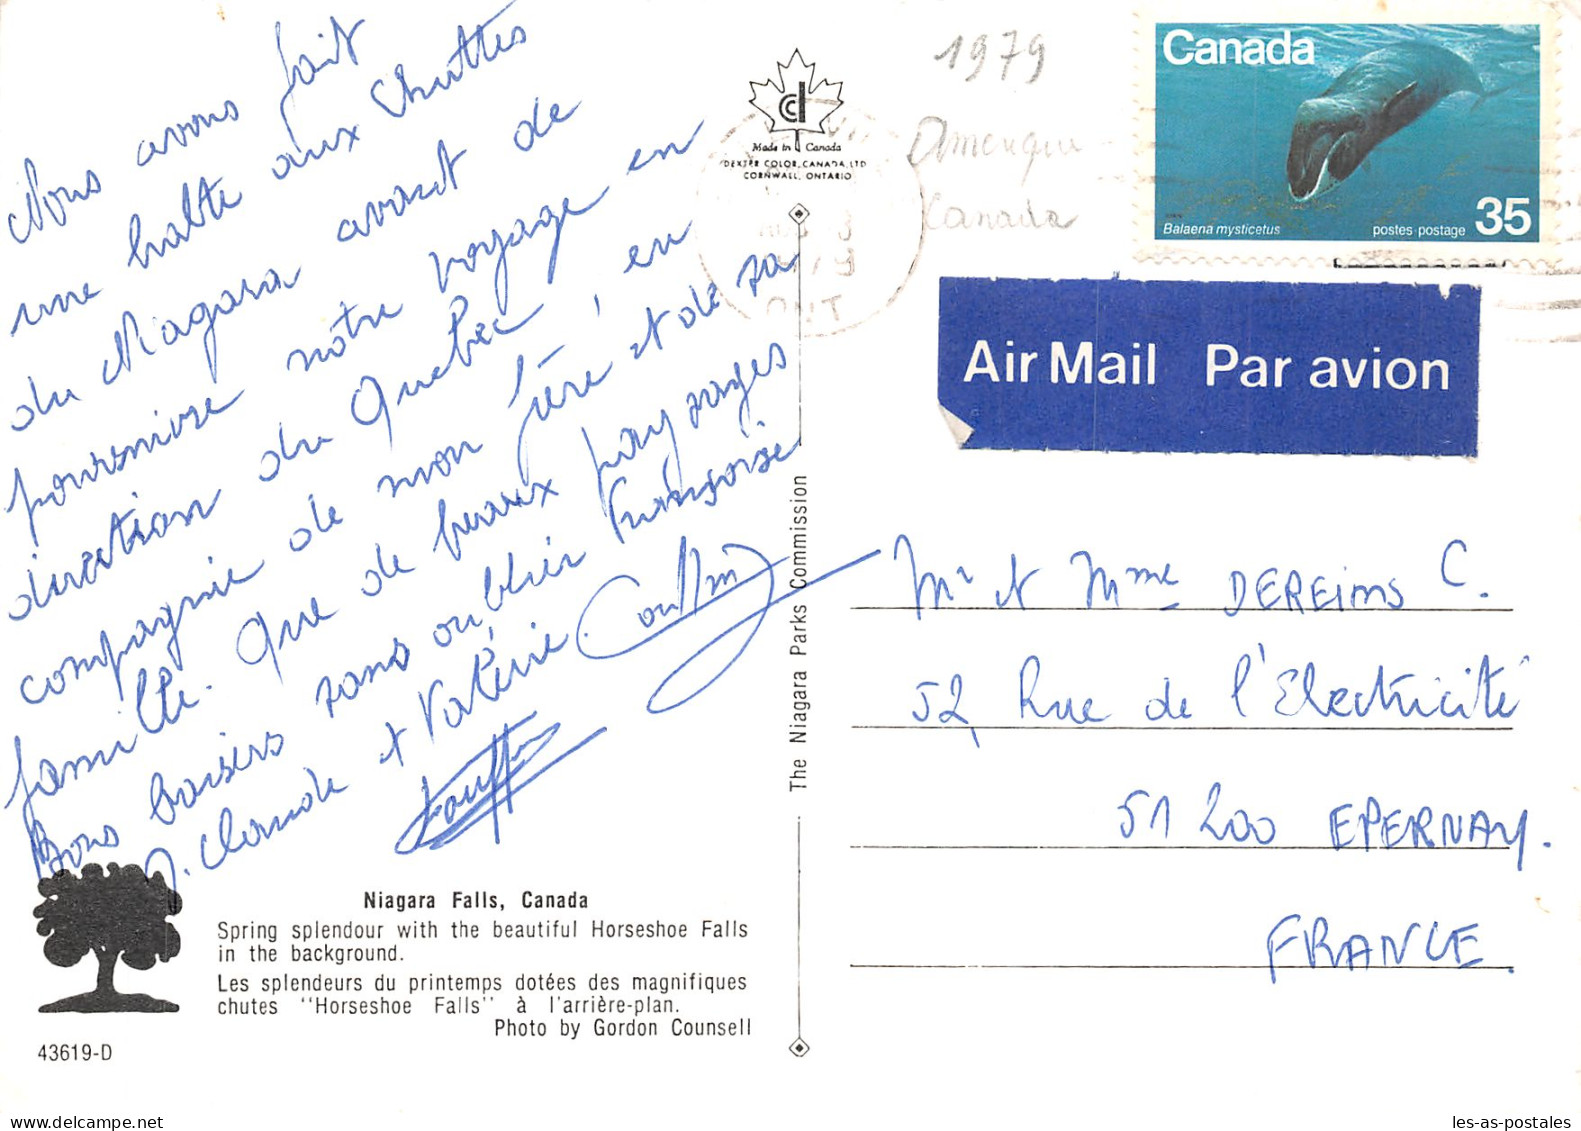 Nous avons fait
une halte aux Chuttes
du Niagara avant de
poursuivre notre voyage en
direction du Quebec, en
compagnie de mon frère et de sa
famille. Que de beaux paysages
Bons baisers sans oublier Françoise
J. Claude et Valérie
Made in Canada
DEXTER COLOR, CANADA, LTD
CORNWALL, ONTARIO
ONT
1979
Amerique
Canada
Canada
Balaena mysticetus
postes · postage
35
Air Mail Par avion
The Niagara Parks Commission
Mr et Mme DEREIMS C.
52 Rue de l'Electricité
51 200 EPERNAY.
FRANCE.
Niagara Falls, Canada
Spring splendour with the beautiful Horseshoe Falls
in the background.
Les splendeurs du printemps dotées des magnifiques
chutes "Horseshoe Falls" à l'arrière-plan.
Photo by Gordon Counsell
43619-D
les-as-postales